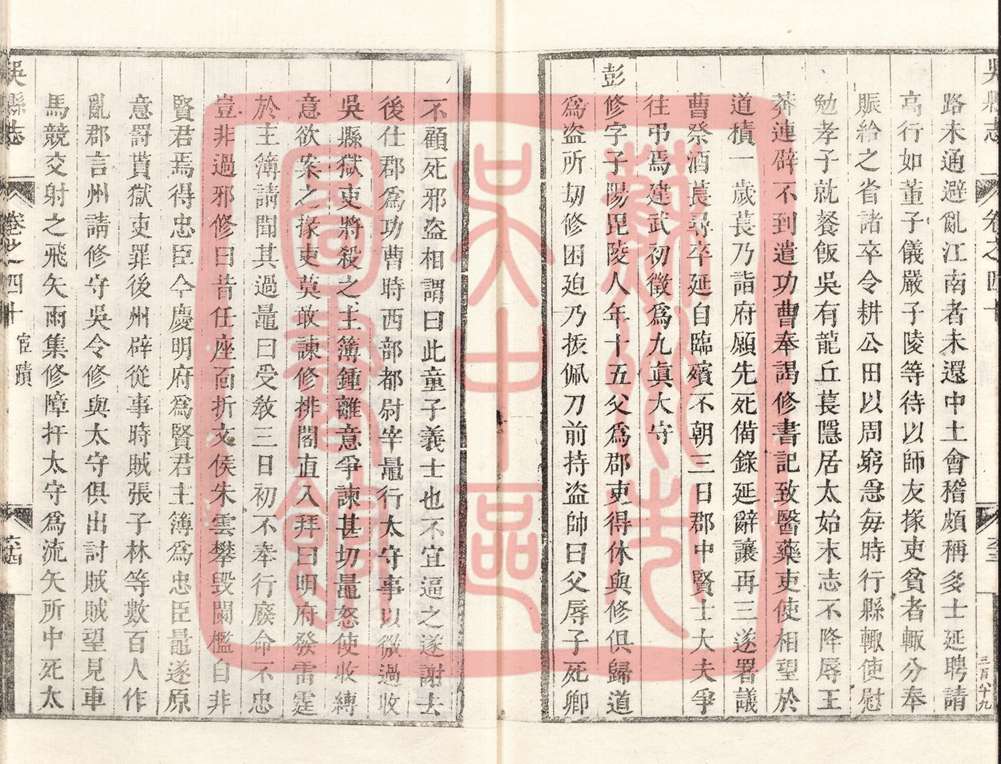 吳縣志
卷之四十
路未通避亂江南者未還中土會稽頗稱多士延聘請
高行如董子儀嚴子陵等待以師友掾吏貧者輒分奉
賑給之省諸卒令耕公田以周窮急每時行縣輒使慰
勉孝子就餐飯吳有龍丘萇隱居太始末志不降辱王
莽連辟不到遣功曹奉謁修書記致醫藥吏使相望於
道積一歲萇乃詣府願先死備錄延辭讓再三遂署議
曹祭酒萇尋卒延自臨殯不朝三日郡中賢士大夫爭
往弔焉建武初徵為九真大守
彭修字子陽毘陵人年十五父為郡吏得休與修俱歸道
為盜所刼修困迫乃拔佩刀前持盜帥曰父辱子死卿
不顧死邪盜相謂曰此童子義士也不宜逼之遂謝去
後仕郡為功曹時西部都尉宰鼂行太守事以微過收
吳縣獄吏將殺之主簿鍾離意爭諫甚切鼂怒使收縛
意欲案之掾吏莫敢諫修排閤直入拜曰明府發雷霆
於主簿請聞其過鼂曰受敎三日初不奉行廢命不忠
豈非過邪修曰昔任座面折文侯朱雲攀毀闌檻自非
賢君焉得忠臣今慶明府為賢君主簿為忠臣鼂遂原
意罰貰獄吏罪後州辟從事時賊張子林等數百人作
亂郡言州請修守吳令修與太守俱出討賊賊望見車
馬競交射之飛矢雨集修障扞太守為流矢所中死太
吳縣志
卷之四十 宦蹟
蘇州市
吳中區
圖書館